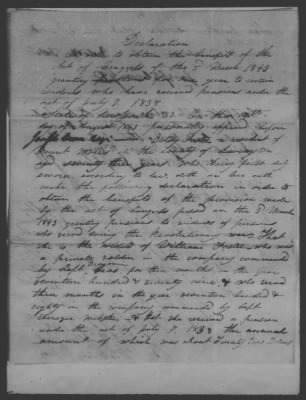 Declaration
to obtain the benefit of the
Act of Congress of the 3d March 1843
granting for one year to certain
widows who have received pensions under the
act of July 7. 1838
State of SS On this
day of August 1843 personally appeared before
a resident of
Mount Morris in the County of
aged seventy three years who being first duly
sworn according to law doth on her oath
make the following declaration in order to
obtain the benefits of the provision made
by the act of Congress passed on the 3d March
1843 granting pensions to widows of persons
who served during the Revolutionary War. That
she is the widow of William who was
a private soldier in the company commanded
by Capt. for three months in the year
seventeen hundred & seventy nine & who served
three months in the year seventeen hundred &
eighty in the company commanded by Capt.
Ebenezer Webster & that she received a pension
under the act of July 7. 1838 the annual
amount of which was about Twenty